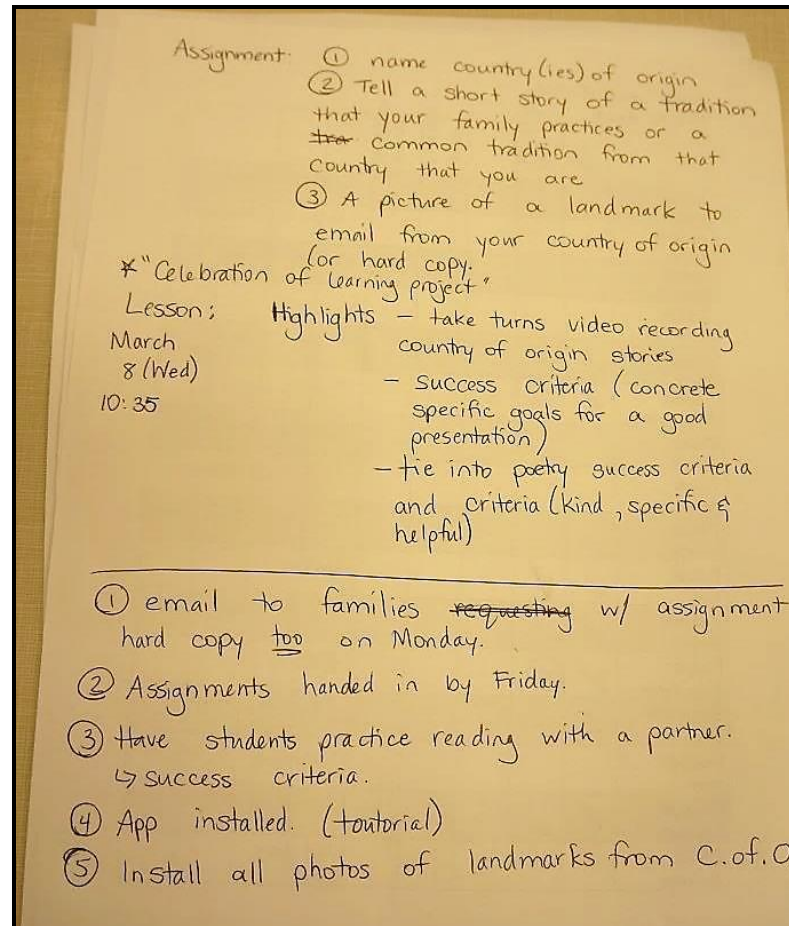 Assignment: ① name country(ies) of origin
② Tell a short story of a tradition
that your family practices or a
tra common tradition from that
country that you are
③ A picture of a landmark to
email from your country of origin
(or hard copy.
* "Celebration of learning project"
Lesson; Highlights - take turns video recording
March country of origin stories
8 (Wed) - success criteria (concrete
10:35 specific goals for a good
presentation)
- tie into poetry success criteria
and criteria (kind, specific &
helpful)
① email to families requesting w/ assignment
hard copy too on Monday.
② Assignments handed in by Friday.
③ Have students practice reading with a partner.
↳ success criteria.
④ App installed. (toutorial)
⑤ Install all photos of landmarks from C.of.O